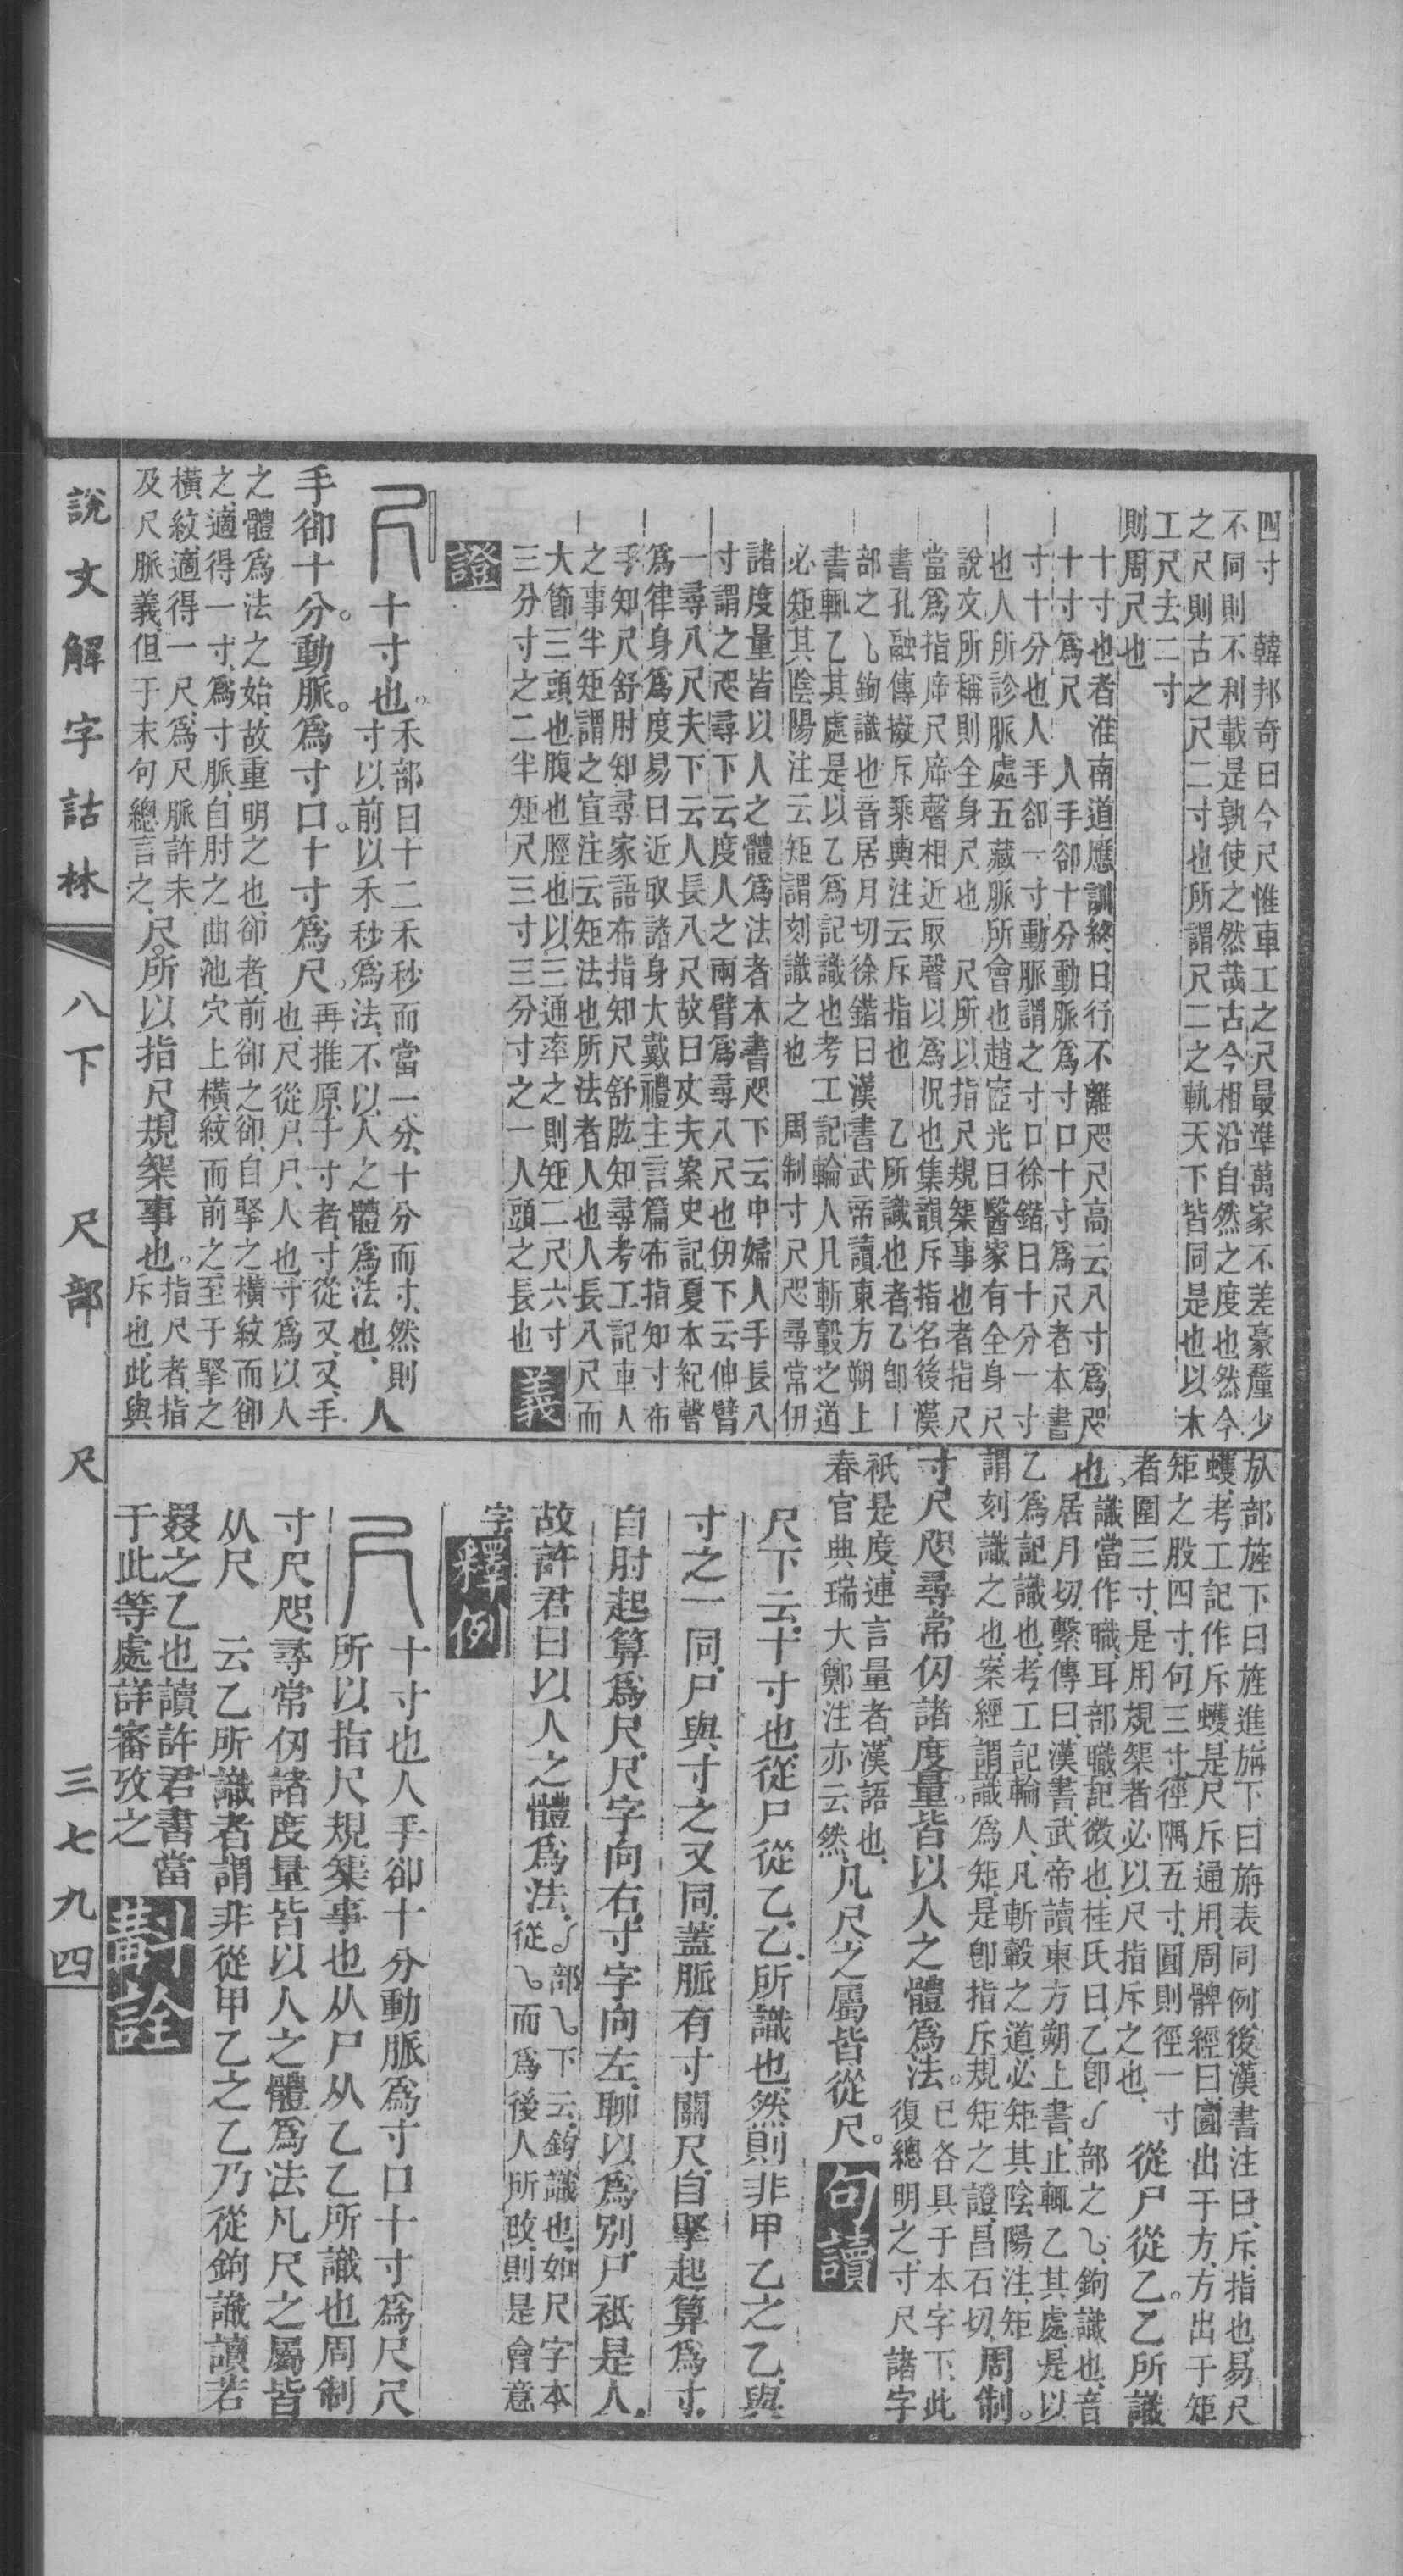 四寸　韓邦奇曰今尺惟車工之尺最準萬家不差豪釐少
不同則不利載是孰使之然哉古今相沿自然之度也然今
之尺則古之尺二寸也所謂尺二之軌天下皆同是也以木
工尺去二寸
則周尺也
十寸也者淮南道應訓終日行不離咫尺高云八寸爲咫
十寸爲尺　人手卻十分動脈爲寸口十寸爲尺者本書
寸十分也人手卻一寸動脈謂之寸口徐鍇曰十分一寸
也人所診脈處五藏脈所會也趙宧光曰醫家有全身尺
說文所稱則全身尺也　尺所以指尺規榘事也者指尺
當爲指㡿尺㡿聲相近取聲以爲況也集韻斥指名後漢
書孔融傳擬斥乘輿注云斥指也　乙所識也者乙卽亅
部之乀鉤識也音居月切徐鍇曰漢書武帝讀東方朔上
書輒乙其處是以乙爲記識也考工記輪人凡斬轂之道
必矩其陰陽注云矩謂刻識之也　周制寸尺咫尋常仞
諸度量皆以人之體爲法者本書咫下云中婦人手長八
寸謂之咫尋下云度人之兩臂爲尋八尺也仞下云伸臂
一尋八尺夫下云人長八尺故曰丈夫案史記夏本紀聲
爲律身爲度易曰近取諸身大戴禮主言篇布指知寸布
手知尺舒肘知尋家語布指知尺舒肱知尋考工記車人
之事半矩謂之宣注云矩法也所法者人也人長八尺而
大節三頭也腹也脛也以三通率之則矩二尺六寸
三分寸之二半矩尺三寸三分寸之一人頭之長也　義
證
尺　十寸也。禾部曰十二禾秒而當一分、十分而寸、然則
寸以前以禾秒爲法、不以人之體爲法也、人
手卻十分。動脈。爲寸口。十寸爲尺。再推原于寸者、寸從又、又、手
也、尺從尸、尸、人也、寸爲以人
之體爲法之始、故重明之也、卻者、前卻之卻、自掔之橫紋而卻
之、適得一寸、爲寸脈、自肘之曲池穴上橫紋而前之、至于掔之
橫紋、適得一尺、爲尺脈、許未
及尺脈義、但于末句總言之、尺。所以指尺規榘事也。指尺者、指
斥也、此與
㫃部旌下曰旌進、旃下曰旃表同例、後漢書注曰、斥、指也、易尺
蠖、考工記作斥蠖、是尺斥通用、周髀經曰、圜出于方、方出于矩
矩之股四寸、句三寸、徑隅五寸、圓則徑一寸
者圍三寸、是用規榘者必以尺指斥之也、從尸從乙。乙所識
也。識當作職、耳部、職、記微也、桂氏曰、乙卽亅部之乀、鉤識也、音
居月切、繫傳曰、漢書武帝讀東方朔上書、止輒乙其處、是以
乙爲記識也、考工記輪人、凡斬轂之道、必矩其陰陽、注、矩
謂刻識之也、案經謂識爲矩、是卽指斥規矩之證、昌石切、周制。
寸尺咫尋常仞諸度量。皆以人之體爲法。已各具于本字下、此
復總明之、寸尺諸字
祇是度、連言量者、漢語也、
春官典瑞大鄭注亦云然、凡尺之屬皆從尺。　句讀
尺下云、十寸也、從尸從乙、乙、所識也、然則非甲乙之乙、與
寸之一同、尸與寸之又同、蓋脈有寸關尺、自掔起算爲寸、
自肘起算爲尺、尺字向右、寸字向左、聊以爲別、尸祇是人、
故許君曰以人之體爲法、亅部乀下云、鉤識也、如尺字本
從乀而爲後人所改、則是會意
字　釋例
尺　十寸也人手卻十分動脈爲寸口十寸爲尺尺
所以指尺規榘事也从尸从乙乙所識也周制
寸尺咫尋常仞諸度量皆以人之體爲法凡尺之屬皆
从尺　云乙所識者謂非從甲乙之乙乃從鉤識讀若
之乙也讀許君書當
于此等處詳審攷之　斠詮
說文解字詁林　八下　尺部　尺　三七九四